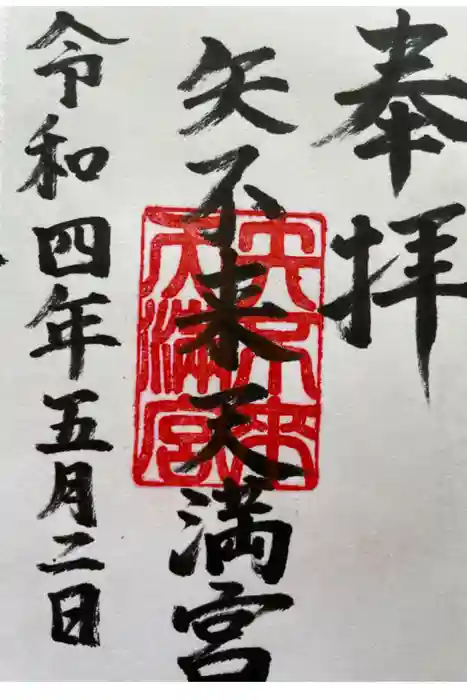 奉拝
矢不来天満宮
矢不来
天満宮
令和四年五月二日